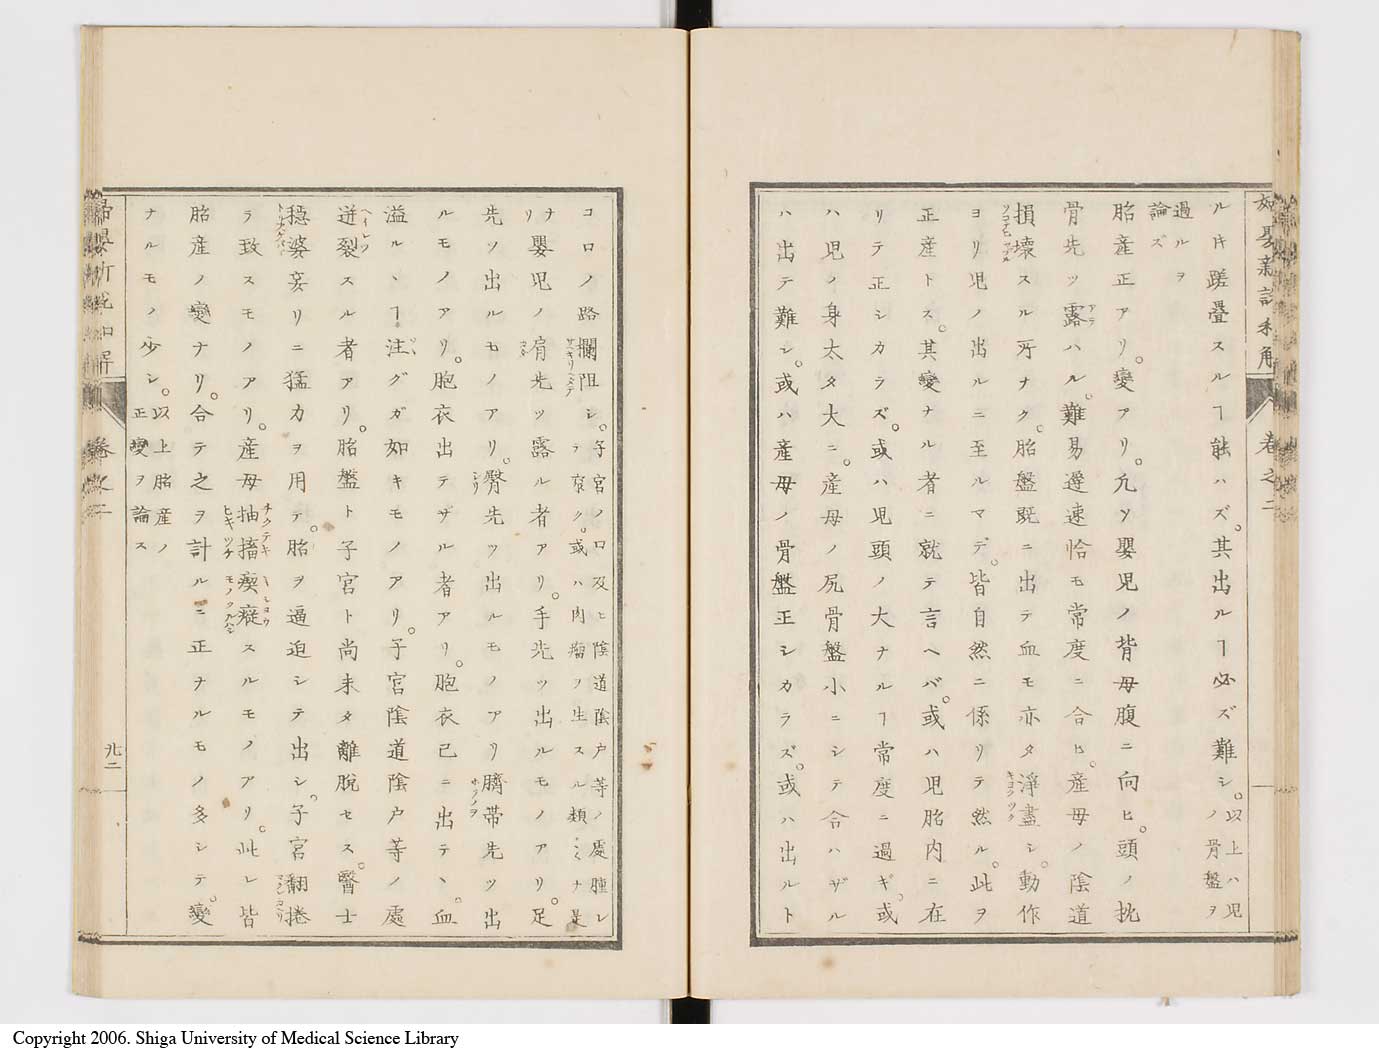 卷之二
ル片蹉疊スルヿ能ハズ。其出ルヿ必ズ難シ。以上ハ児
ノ骨盤ヲ
過ルヲ
論ズ
胎産正アリ。變アリ。凡ソ嬰児ノ背母腹ニ向ヒ。頭ノ枕
骨先ッ露ハル。難易遲速恰モ常度ニ合ヒ。産母ノ陰道
損壊スル所ナク。胎盤既ニ出テ血モ亦タ淨盡シ。動作
ヨリ児ノ出ルニ至ルマデ。皆自然ニ係リテ然ル。此ヲ
正産トス。其變ナル者ニ就テ言ヘバ。或ハ児胎内ニ在
リテ正シカラズ。或ハ児頭ノ大ナルヿ常度ニ過ギ。或
ハ児ノ身太タ大ニ。産母ノ尻骨盤小ニシテ合ハザル
ハ出テ難シ。或ハ産母ノ骨盤正シカラズ。或ハ出ルト
コロノ路攔阻シ。子宮ノ口及ヒ陰道陰户等ノ處腫レ
テ窄ク。或ハ肉瘤ヲ生スル類ミナ是
ナリ嬰児ノ肩先ッ露ル者アリ。手先ッ出ルモノアリ。足
先ッ出ルモノアリ。臀先ッ出ルモノアリ臍帯先ッ出
ルモノアリ。胞衣出テザル者アリ。胞衣已ニ出テヽ血
溢ルヽヿ注グガ如キモノアリ。子宮陰道陰户等ノ處
迸裂スル者アリ。胎盤ト子宮ト尚未タ離脱セス。醫士
穏婆妄リニ猛力ヲ用テ。胎ヲ逼迫シテ出シ。子宮翻捲
ラ致スモノアリ。産母抽搐瘈瘲スルモノアリ。此レ皆
胎産ノ變ナリ。合テ之ヲ計ルニ正ナルモノ多シテ。變
ナルモノ少シ。以上胎産ノ
正變ヲ論ス
卷之二
九二
Copyright 2006. Shiga University of Medical Science Library